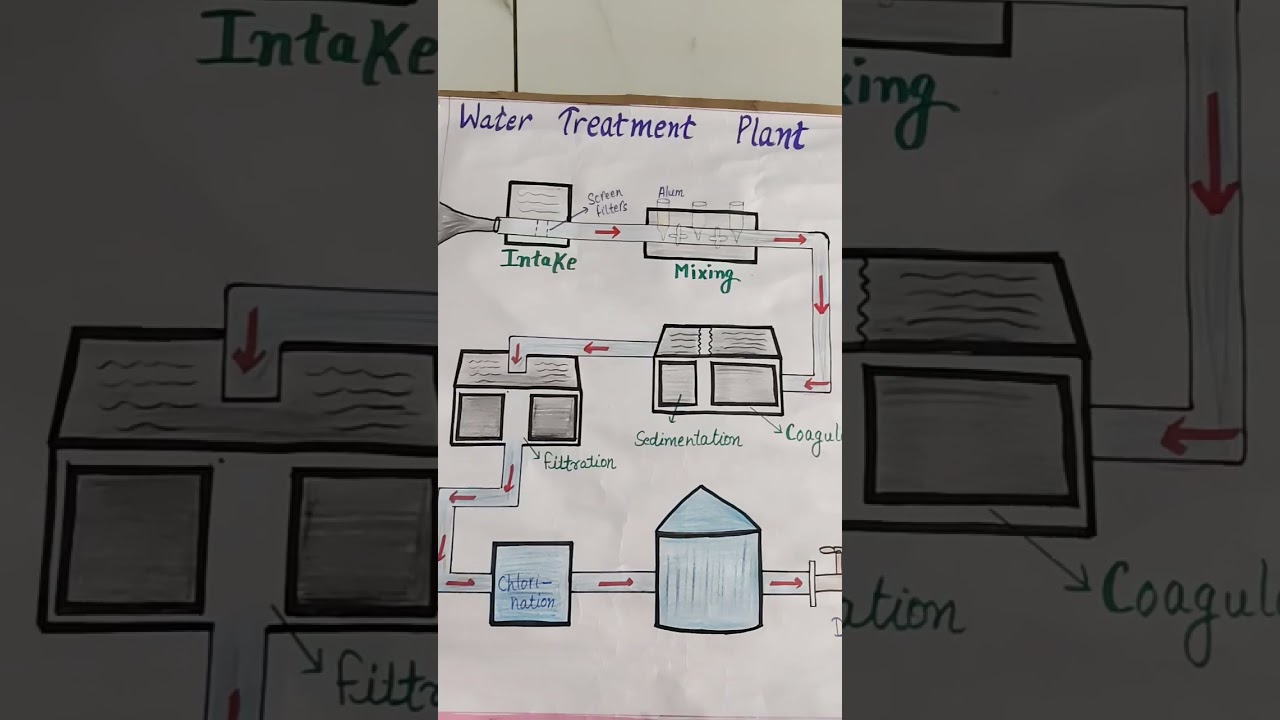 Water Treatment Plant
Screen
filters
Alum
Intake
Mixing
Sedimentation
Coagul
Filtration
Chlori-
nation